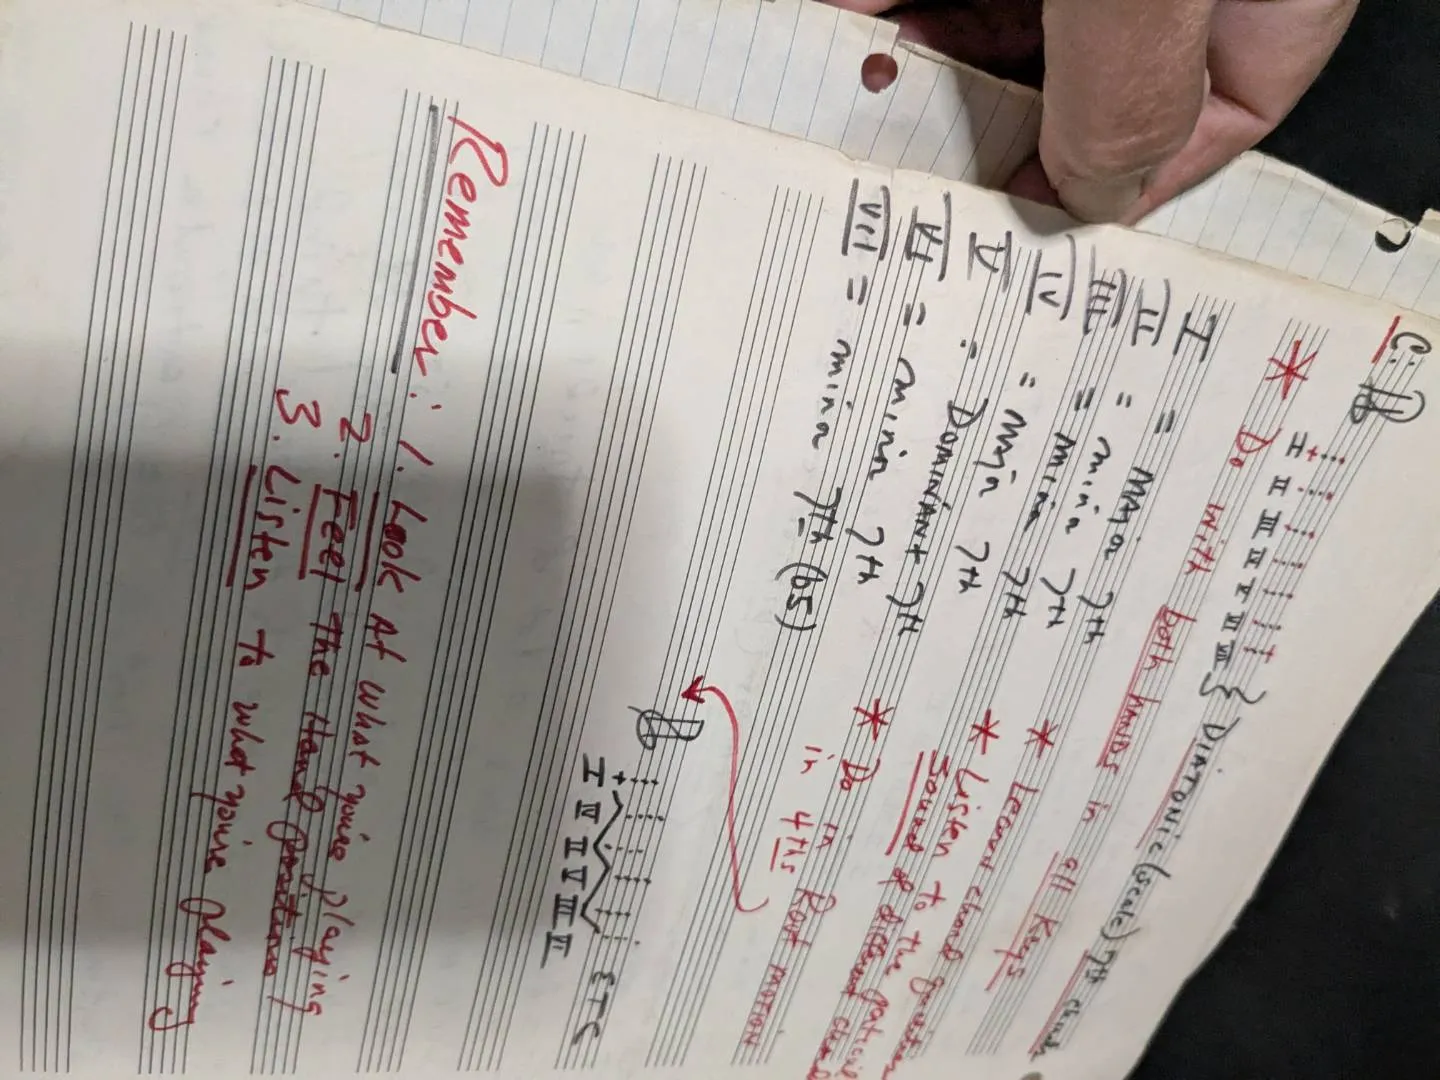 C: I II III IV V VI VII } DIATONIC (scale) 7th chords
* Do with both hands in all Keys
I = Major 7th
II = minor 7th * Learn chord
III = minor 7th * Listen to the
IV = Major 7th Sound of different chord
V = DOMINANT 7th
VI = minor 7th * Do in Root MOTION
VII = minor 7th (b5) in 4ths
I IV II V III VI ETC
Remember: 1. Look At what you're playing
2. Feel The Hand positions
3. Listen to what you're playing